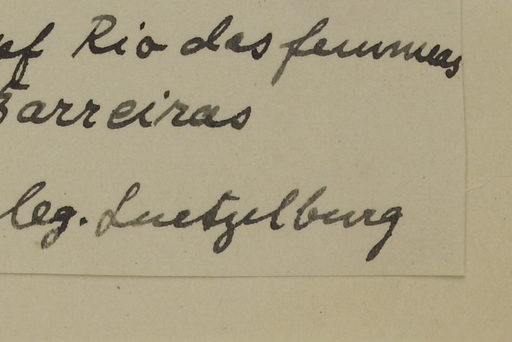 Rio das femmeas
Barreiras
leg. Luetzelburg